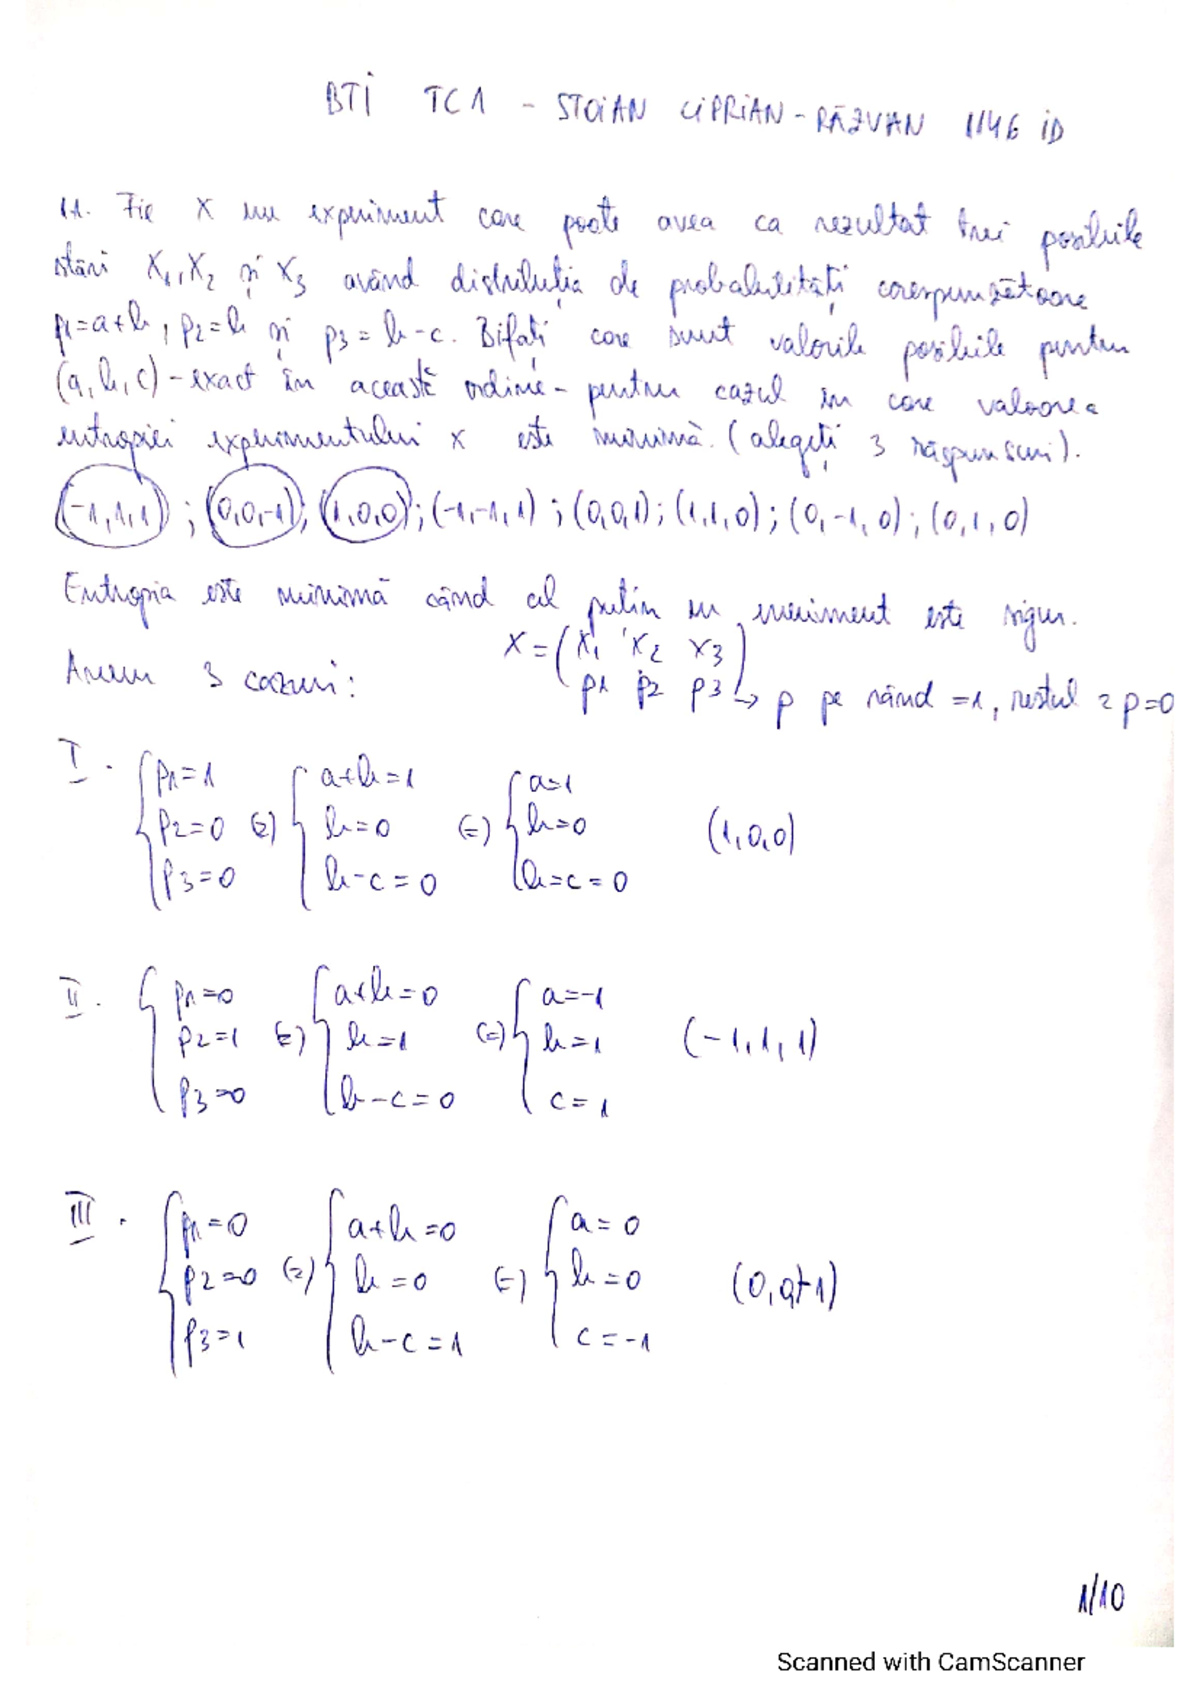 BTI TC1 - STOIAN CIPRIAN-RĂZVAN 1146 ID
11. Fie X un experiment care poate avea ca rezultat trei posibile
stări X1, X2 și X3 având distribuția de probabilități corespunzătoare
p1=a+b, p2=b și p3=b-c. Bifați care sunt valorile posibile pentru
(a,b,c) - exact în această ordine - pentru cazul în care valoarea
entropiei experimentului x este minimă. (alegeți 3 răspunsuri).
(-1,1,1); (0,0,-1); (1,0,0); (-1,-1,1); (0,0,1); (1,1,0); (0,-1,0); (0,1,0)
Entropia este minimă când cel puțin un eveniment este sigur.
Avem 3 cazuri: X = (x1 x2 x3
p1 p2 p3) → p pe rând =1, restul 2 p=0
I. {p1=1 (=) {a+b=1 (=) {a=1
p2=0 b=0 b=0 (1,0,0)
p3=0 b-c=0 b=c=0
II. {p1=0 (=) {a+b=0 (=) {a=-1
p2=1 b=1 b=1 (-1,1,1)
p3=0 b-c=0 c=1
III. {p1=0 (=) {a+b=0 (=) {a=0
p2=0 b=0 b=0 (0,0,-1)
p3=1 b-c=1 c=-1
1/10
Scanned with CamScanner